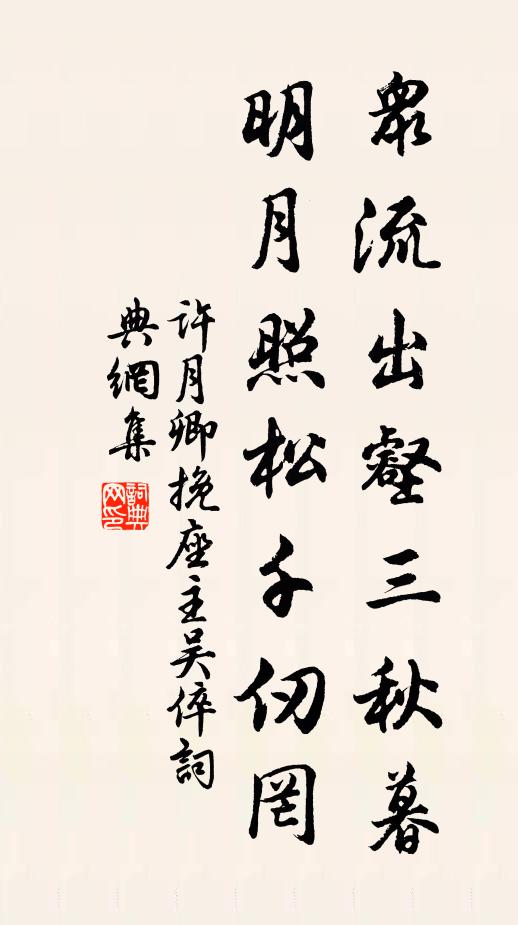 眾流出壑三秋暮
明月照松千仞罔
許月卿挽座主吳倅詞
典網集
詞典網印